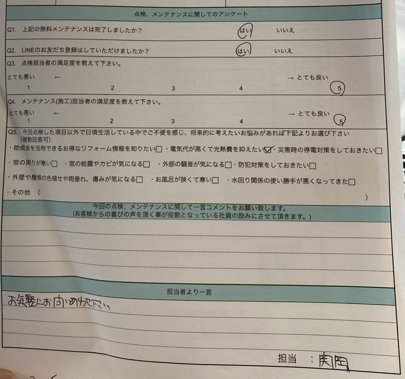 点検、メンテナンスに関してのアンケート
Q1. 上記の無料メンテナンスは完了しましたか? はい いいえ
Q2. LINEのお友だち登録はしていただけましたか? はい いいえ
Q3. 点検担当者の満足度を教えて下さい。
とても悪い ← → とても良い
1 2 3 4 5
Q4. メンテナンス(施工)担当者の満足度を教えて下さい。
とても悪い ← → とても良い
1 2 3 4 5
Q5. 今回点検した項目以外で日頃生活している中でご不便を感じ、将来的に考えたいお悩みがあれば下記よりお選び下さい
(複数回答可)
・助成金を活用できるお得なリフォーム情報を知りたい□ ・電気代が高くて光熱費を抑えたい☑ ・災害時の停電対策をしておきたい□
・窓の周りが寒い□ ・窓の結露やカビが気になる□ ・外部の騒音が気になる□ ・防犯対策をしておきたい□
・外壁や屋根の色褪せや雨垂れ、痛みが気になる□ ・お風呂が狭くて寒い□ ・水回り関係の使い勝手が悪くなってきた□
・その他 ( )
今回の点検、メンテナンスに関して一言コメントをお願い致します。
(お客様からの喜びの声を頂く事が役割となっている社員の励みにさせて頂きます。)
担当者より一言
担当 :